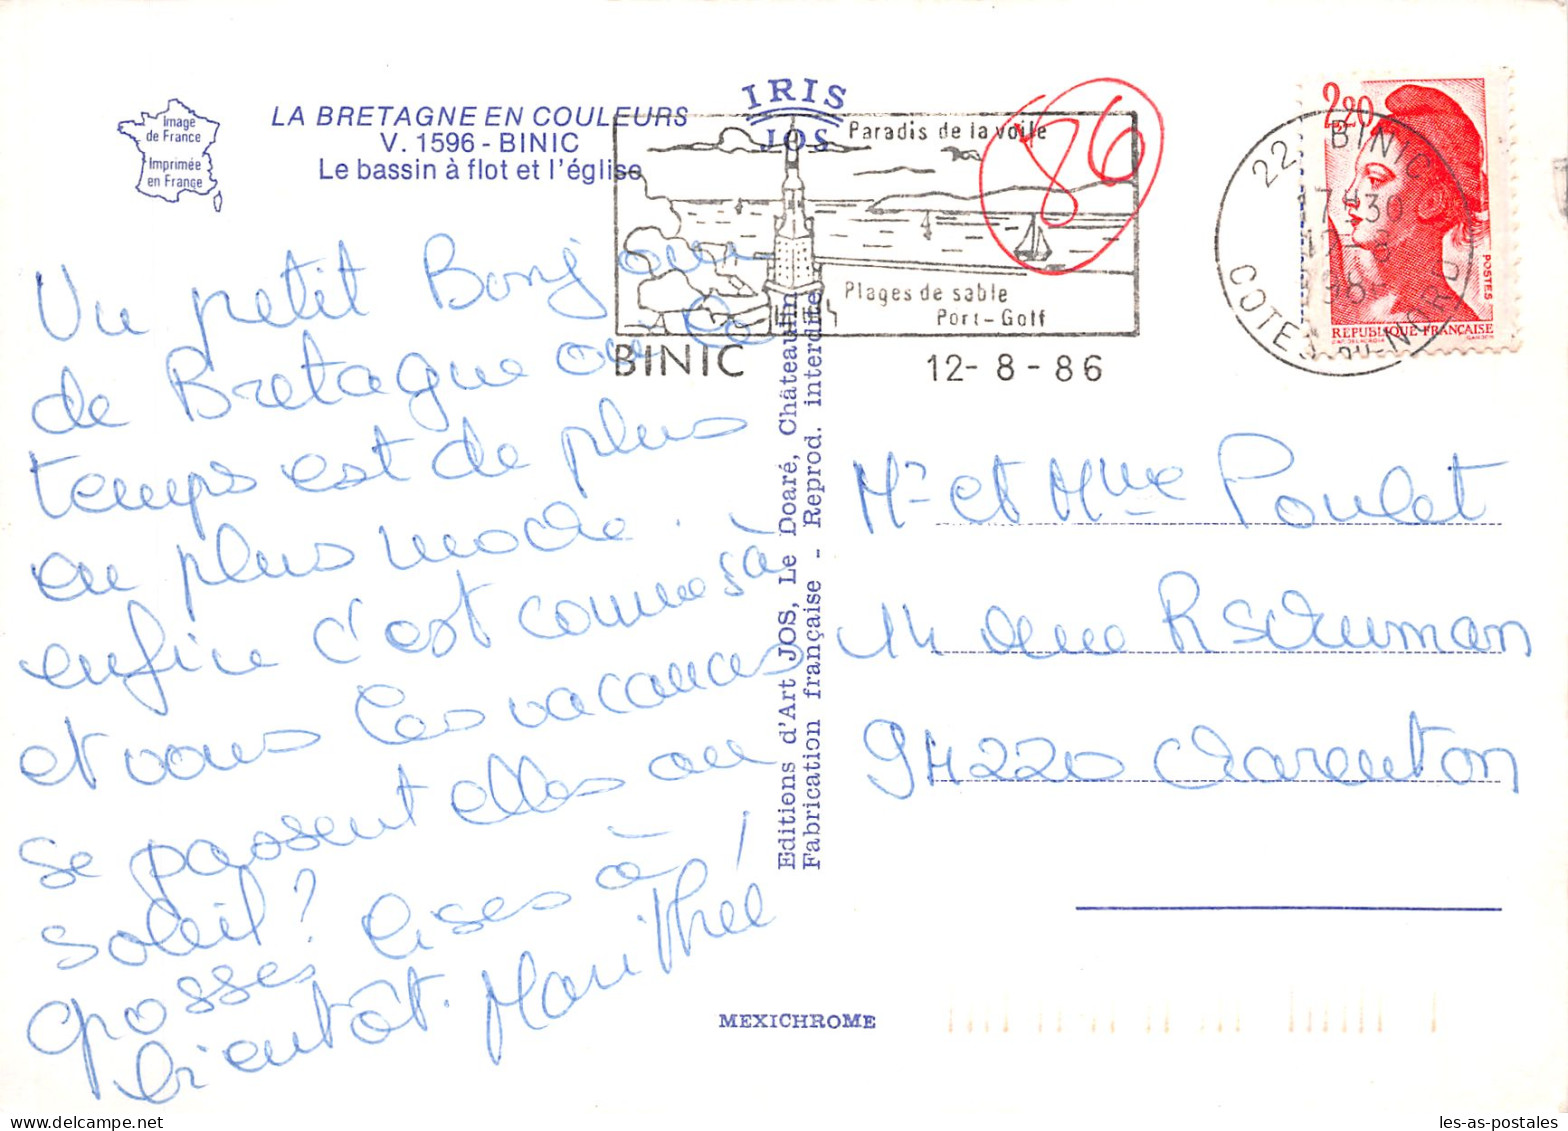 Image
de France
Imprimée
en France
LA BRETAGNE EN COULEURS
V. 1596 - BINIC
Le bassin à flot et l'église
IRIS
JOS
Paradis de la voile
Plages de sable
Port-Golf
BINIC
12-8-86
86
22 BINIC
COTES-DU-NORD
2,20
POSTES
REPUBLIQUE FRANÇAISE
Un petit Bonjour
de Bretagne ou le
temps est de plus
en plus moche.
enfin c'est comme sà
et vous les vacances
se passent elles au
soleil?
grosses bises à
bientôt. MariThée!
Editions d'Art JOS, Le Doaré, Châteaulin
Fabrication française - Reprod. interdite
Mr et Mme Poulet
14 Rschuman
94220 Charenton
MEXICHROME
les-as-postales